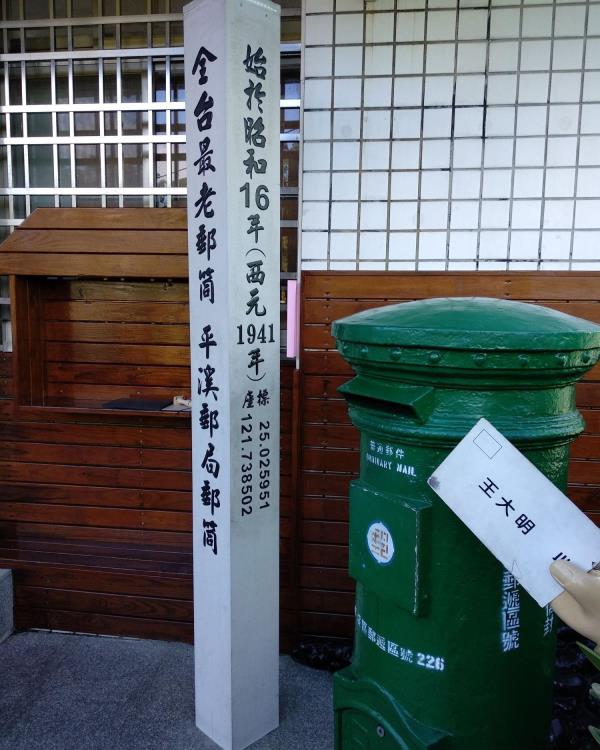 全台最老郵筒 平溪郵局郵筒
始於昭和16年(西元1941年)
座標 25.025951
121.738502
普通郵件
ORDINARY MAIL
郵遞區號 226
郵遞區號
王大明